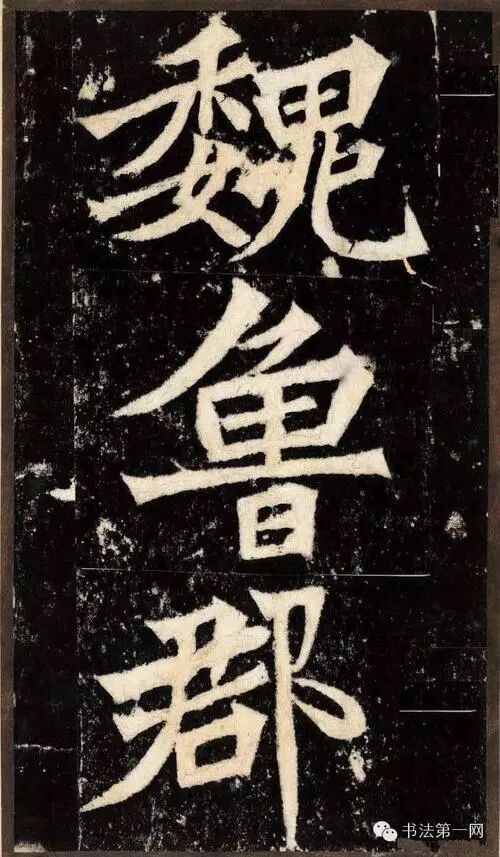 魏
魯
郡
书法第一网